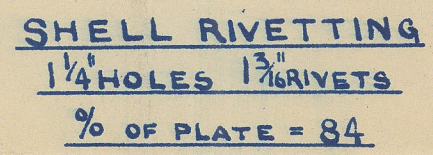 SHELL RIVETTING
1 1/4" HOLES 1 3/16" RIVETS
% OF PLATE = 84